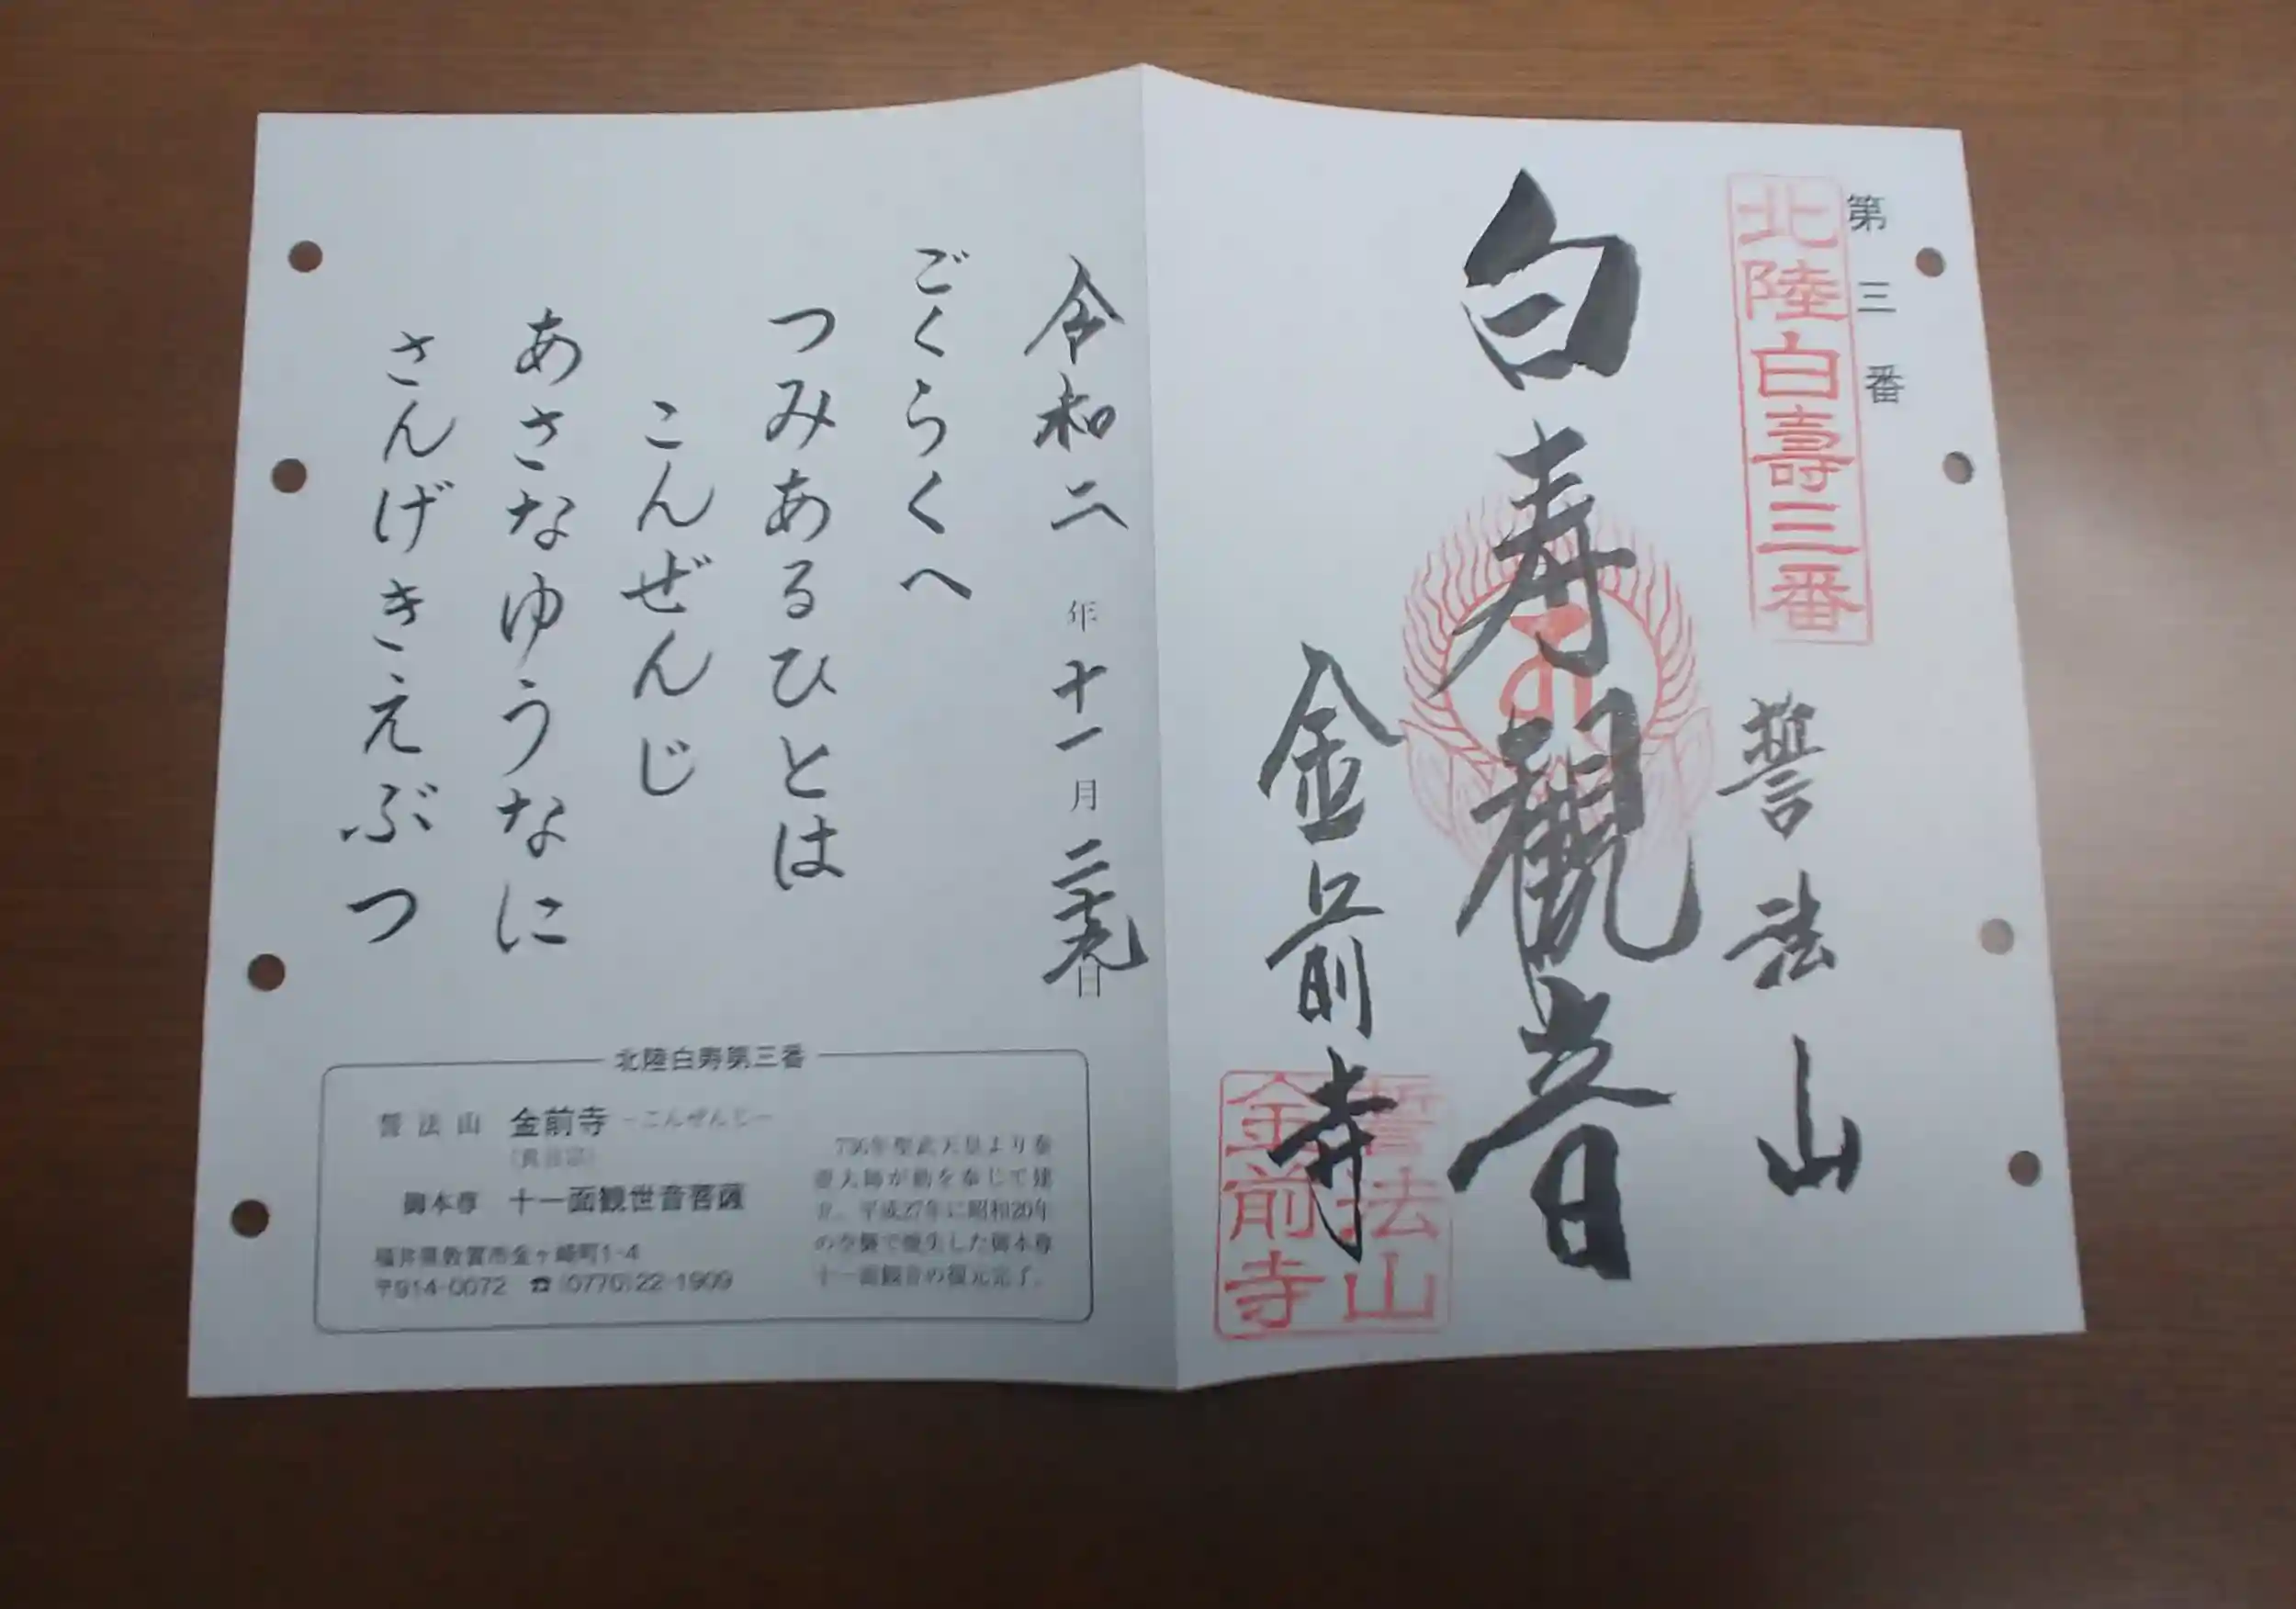 第三番
北陸白壽三番
誓法山
白寿観音
金前寺
誓法山
金前寺
令和二年十一月二十九日
ごくらくへ
つみあるひとは
こんぜんじ
あさなゆうなに
さんげきえぶつ
北陸白寿第三番
誓法山 金前寺 -こんぜんじ-
(真言宗)
御本尊 十一面観世音菩薩
福井県敦賀市金ヶ崎町1-4
〒914-0072 ☎(0770)22-1909
736年聖武天皇より泰
澄大師が勅を奉じて建
立。平成27年に昭和20年
の空襲で焼失した御本尊
十一面観音の復元完了。